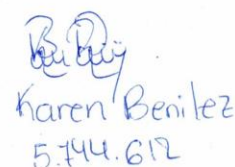 Karen Benilez
5.744.612